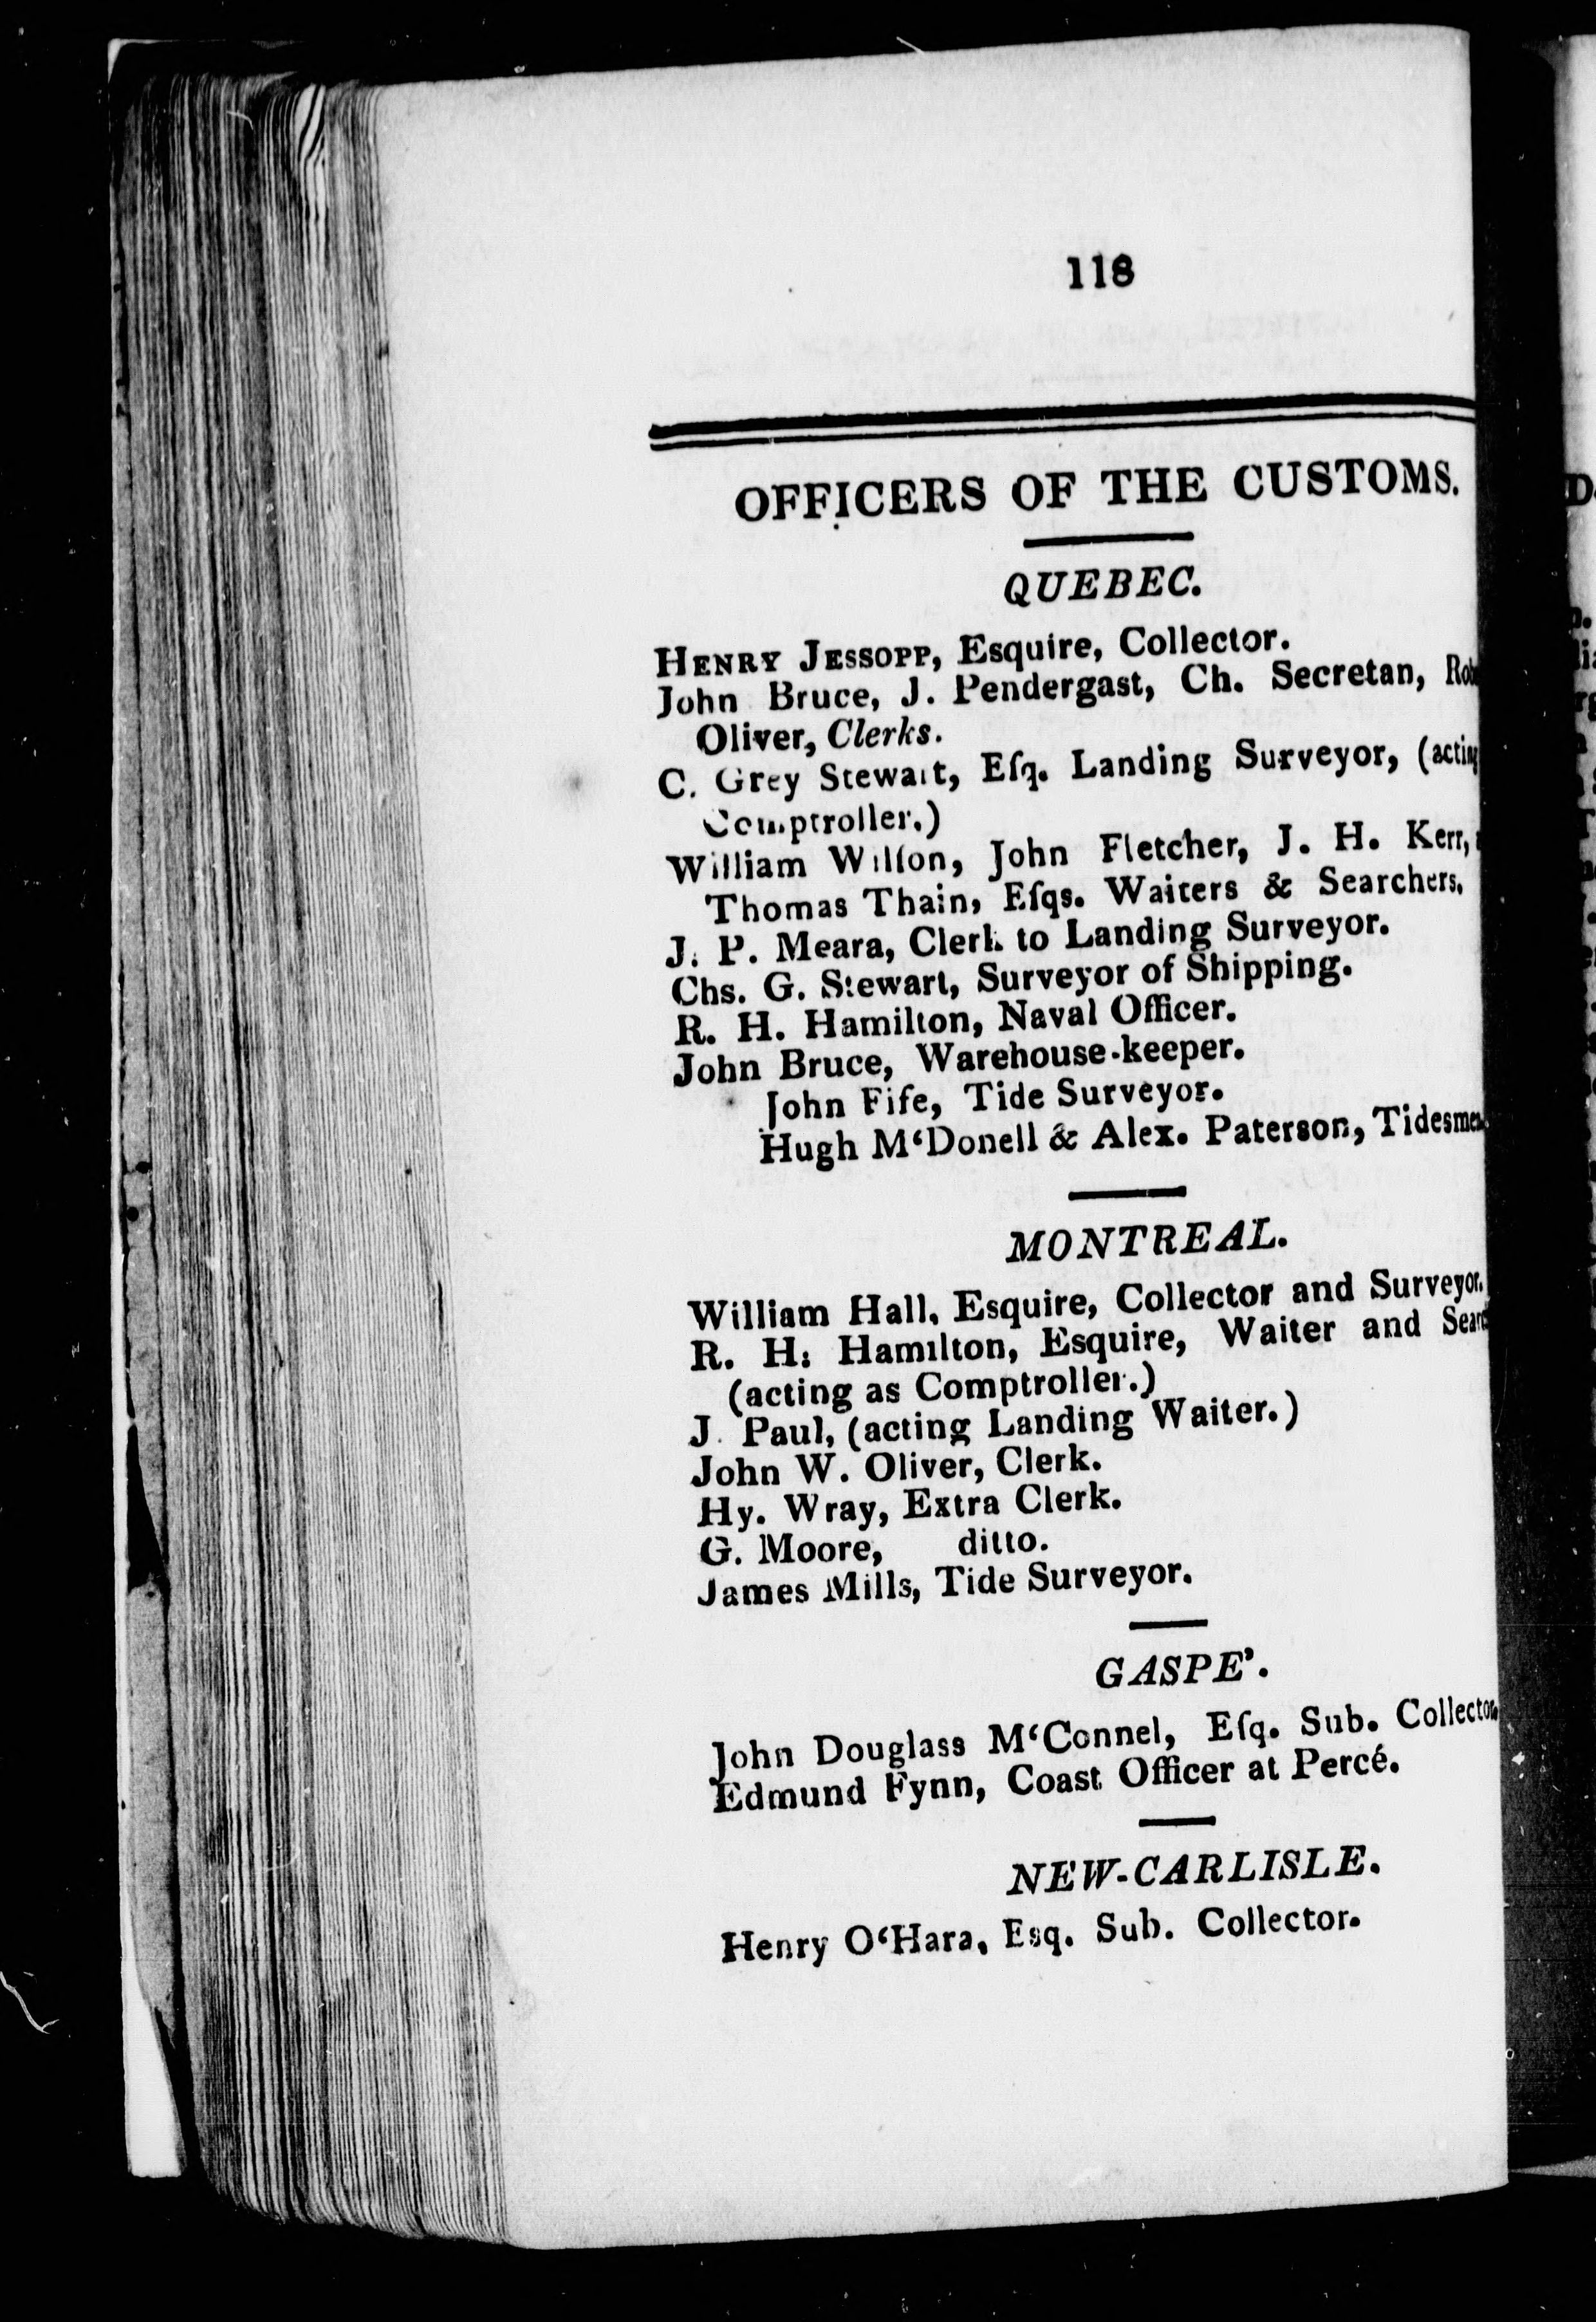 118
OFFICERS OF THE CUSTOMS.
QUEBEC.
HENRY JESSOPP, Esquire, Collector.
John Bruce, J. Pendergast, Ch. Secretan,
Oliver, Clerks.
C. Grey Stewart, Eſq. Landing Surveyor, (acting
Comptroller.)
William Wilſon, John Fletcher, J. H. Kerr,
Thomas Thain, Eſqs. Waiters & Searchers.
J. P. Meara, Clerk to Landing Surveyor.
Chs. G. Stewart, Surveyor of Shipping.
R. H. Hamilton, Naval Officer.
John Bruce, Warehouse-keeper.
John Fife, Tide Surveyor.
Hugh M‘Donell & Alex. Paterson, Tidesmen.
MONTREAL.
William Hall, Esquire, Collector and Surveyor.
R. H: Hamilton, Esquire, Waiter and
(acting as Comptroller.)
J. Paul, (acting Landing Waiter.)
John W. Oliver, Clerk.
Hy. Wray, Extra Clerk.
G. Moore, ditto.
James Mills, Tide Surveyor.
GASPE’.
John Douglass M‘Connel, Eſq. Sub. Collector.
Edmund Fynn, Coast Officer at Percé.
NEW-CARLISLE.
Henry O‘Hara, Esq. Sub. Collector.